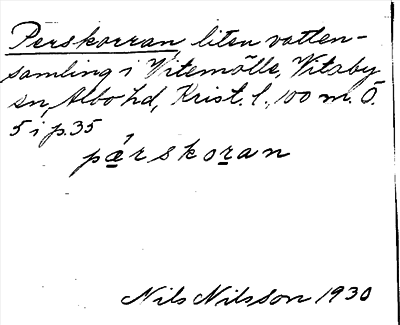 Perskorran, liten vatten-
samling i Vitemölle, Vitaby
sn, Albo hd, Krist. l., 100 m. Ö.
5 i p. 35
pǽ̱rskoṟan
Nils Nilsson 1930